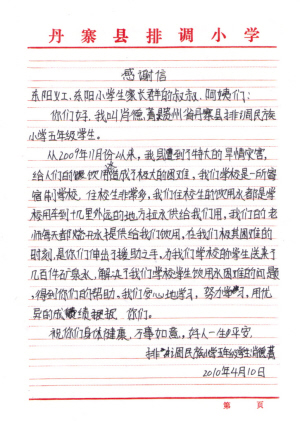 丹寨县排调小学
感谢信
东阳义工、东阳小学生家长群的叔叔、阿姨们:
你们好,我叫肖德菖是贵州省丹寨县排调民族
小学五年级学生。
从2009年11月份以来,我县遭到了特大的旱情灾害,
给人们的饮用造成了极大的困难,我们学校是一所寄
宿制学校,住校生非常多,我们住校生的饮用水都是学
校用车到十几里外远的地方拉水供给我们用,我们的老
师每天都烧开水提供给我们饮用,在我们极其困难的
时刻,是你们伸出了援助之手,为我们学校的学生送来了
几百件矿泉水,解决了我们学校学生饮用水困难的问题
,得到你们的帮助,我们安心地学习,努力学习,用优
异的成绩报报你们。
祝你们身体健康,万事如意,好人一生平安,
排调民族小学五年级学生肖德菖
2010年4月10日
第 页